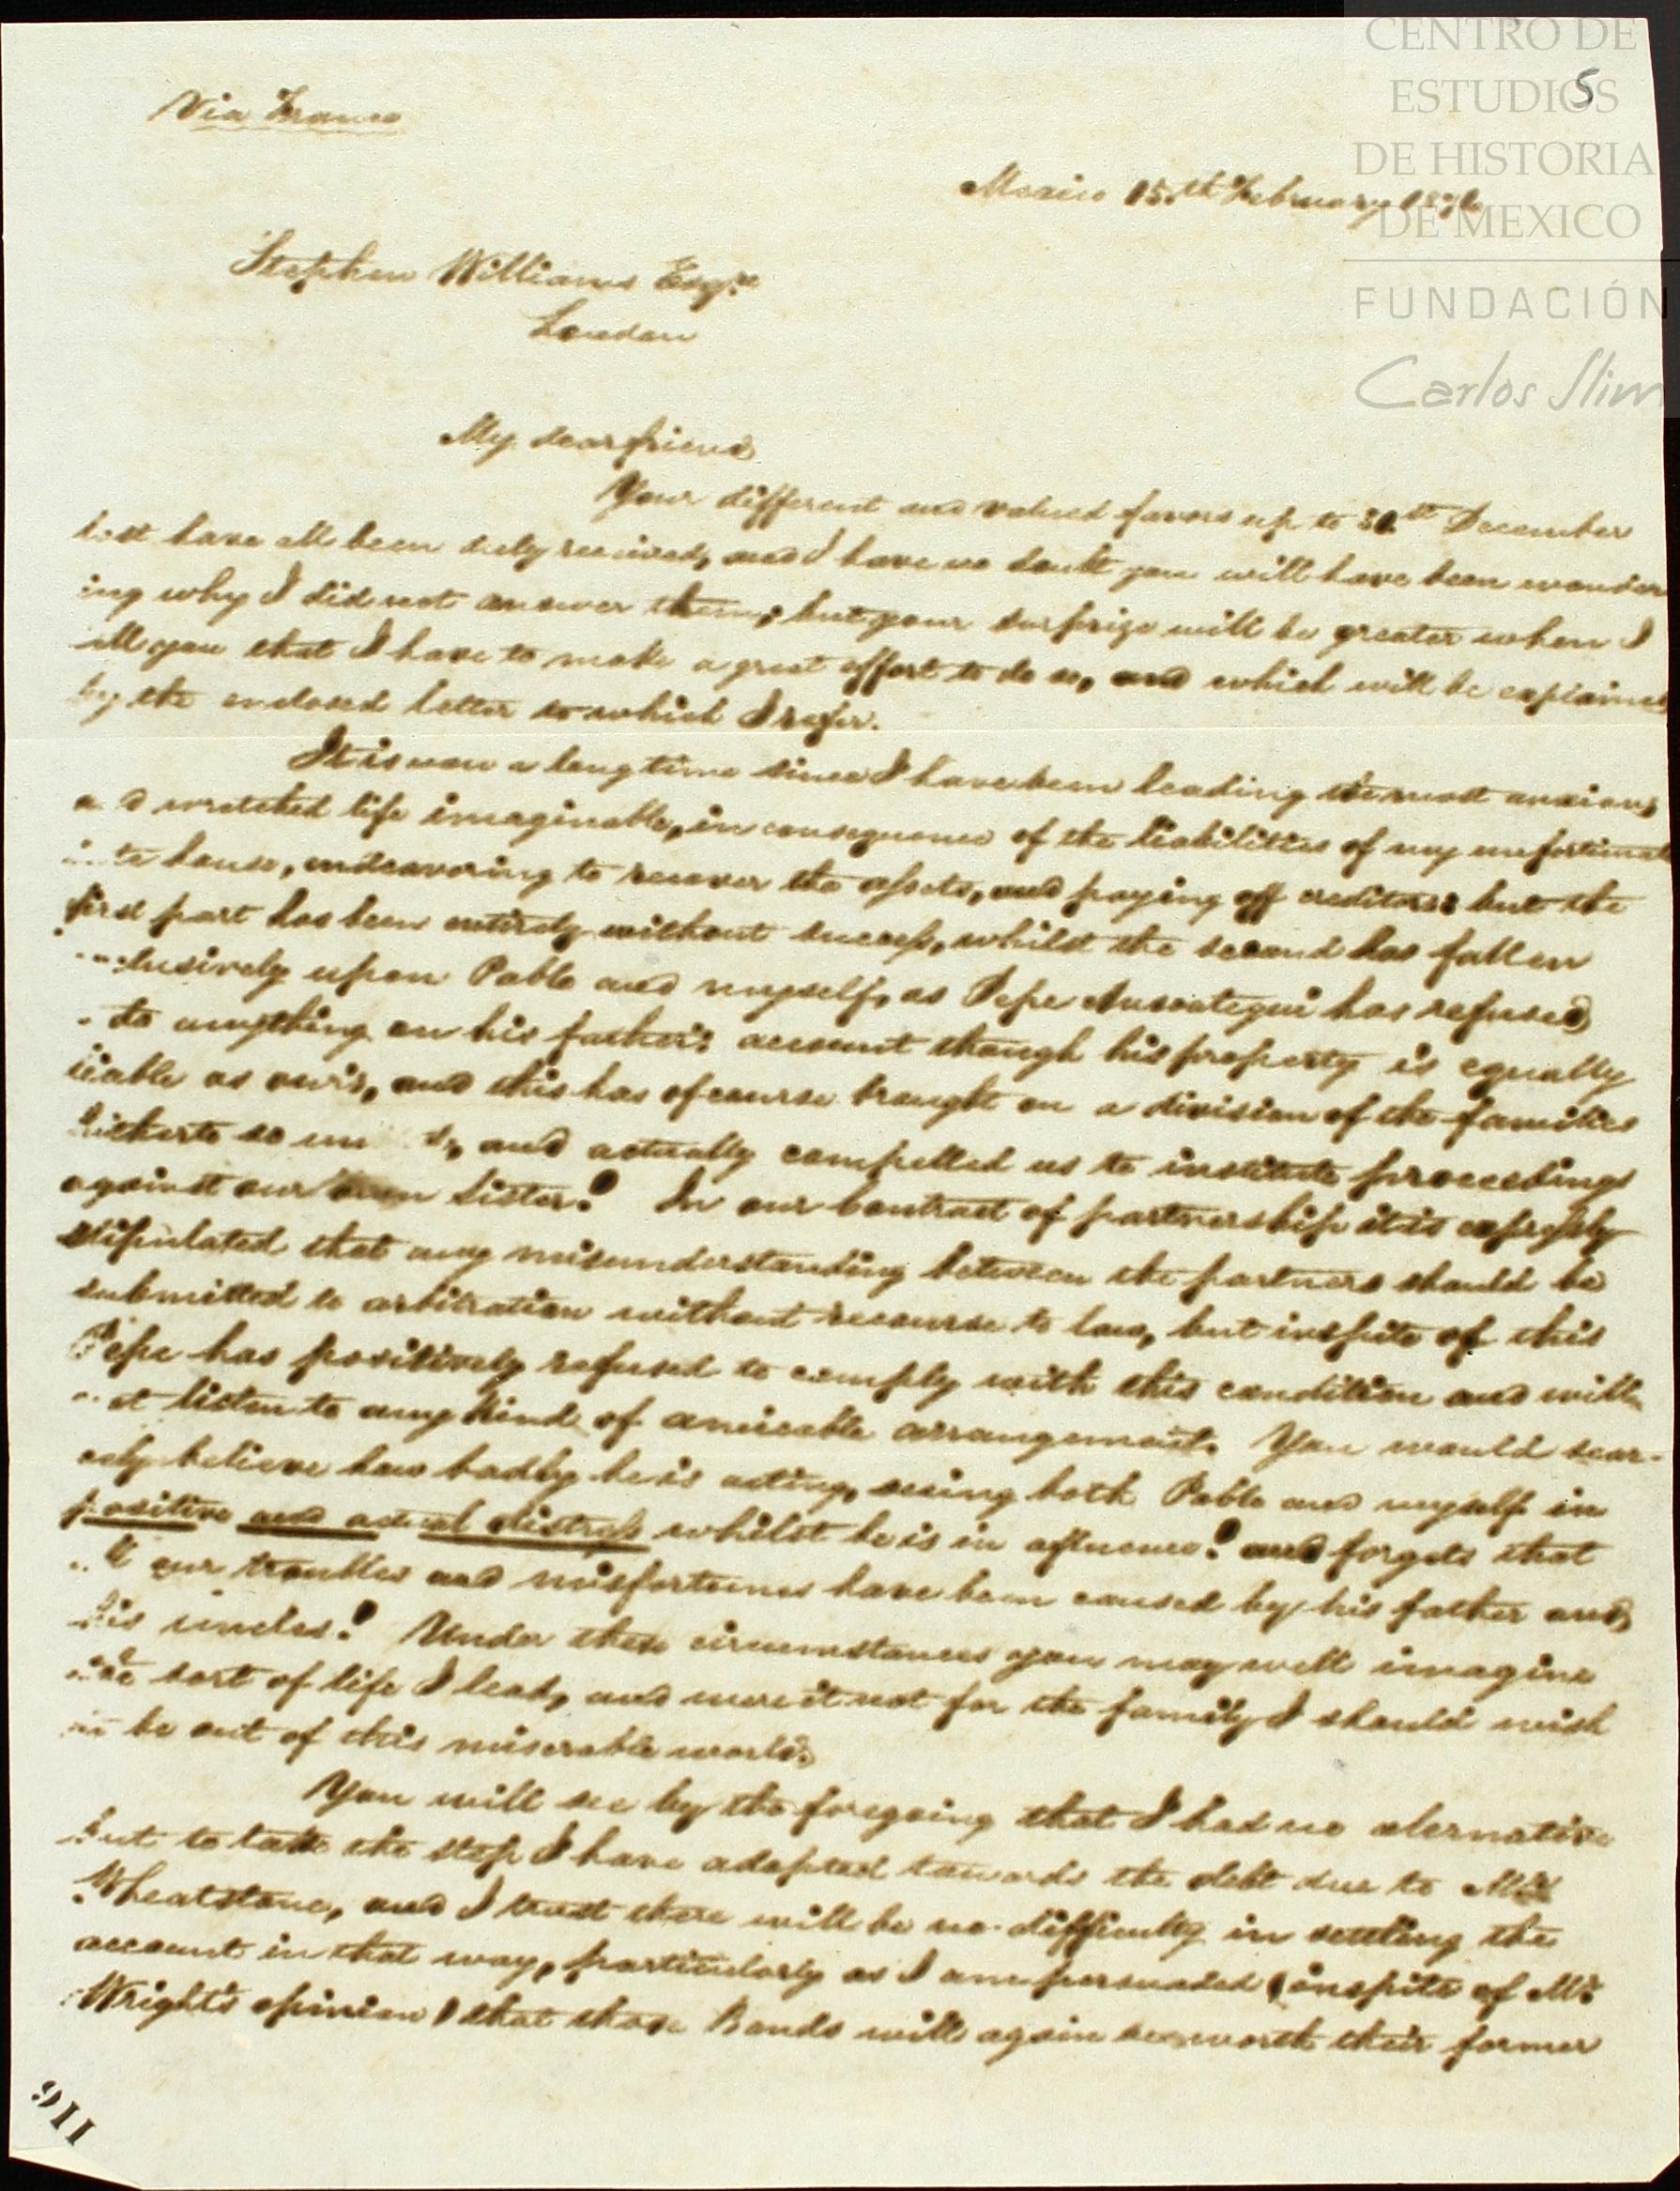 CENTRO DE
ESTUDIOS
5
DE HISTORIA
DE MEXICO
FUNDACIÓN
Carlos Slim
Via France
Mexico 15th February
Stephen Williams Esqre
London
My dear friend
Your different and valued favors up to December
last have all been duly received, and I have no doubt you will have been wonder
ing why I did not answer them; but your surprize will be greater when I
tell you that I have to make a great effort to do so, and which will be explained
by the enclosed letter to which I refer.
It is now a long time since I have been leading the most anxious
and wretched life imaginable, in consequence of the liabilities of my unfortunate
late house, endeavoring to recover the assets, and paying off creditors: but the
first part has been entirely without success, whilst the second has fallen
exclusively upon Pablo and myself, as Pepe Ansoategui has refused
to do anything on his father's account though his property is equally
liable as ours, and this has of course brought on a division of the families
hitherto so un and actually compelled us to institute proceedings
against our own sister! In our Contract of partnership it is expressly
stipulated that any misunderstanding between the partners should be
submitted to arbitration without recourse to law, but inspite of this
Pepe has positively refused to comply with this condition and will
not listen to any kind of amicable arrangement. You would scar-
cely believe how badly he is acting, seeing both Pablo and myself in
positive and actual distress whilst he is in afluence! and forgets that
all our troubles and misfortunes have been caused by his father and
his uncles! Under these circumstances you may well imagine
the sort of life I lead, and were it not for the family I should wish
to be out of this miserable world.
You will see by the foregoing that I had no alernative
but to take the step I have adopted towards the debt due to
Wheatstone, and I trust there will be no difficulty in settling the
account in that way, particularly as I am persuaded (inspite of Mr
Wright's opinion) that those Bonds will again be worth their former
116